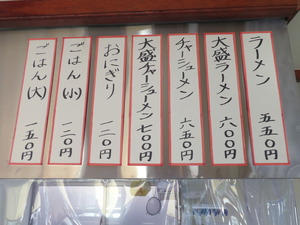 ラーメン 五五〇円
大盛ラーメン 六〇〇円
チャーシューメン 六五〇円
大盛チャーシューメン 七〇〇円
おにぎり 一二〇円
ごはん(小) 一二〇円
ごはん(大) 一五〇円